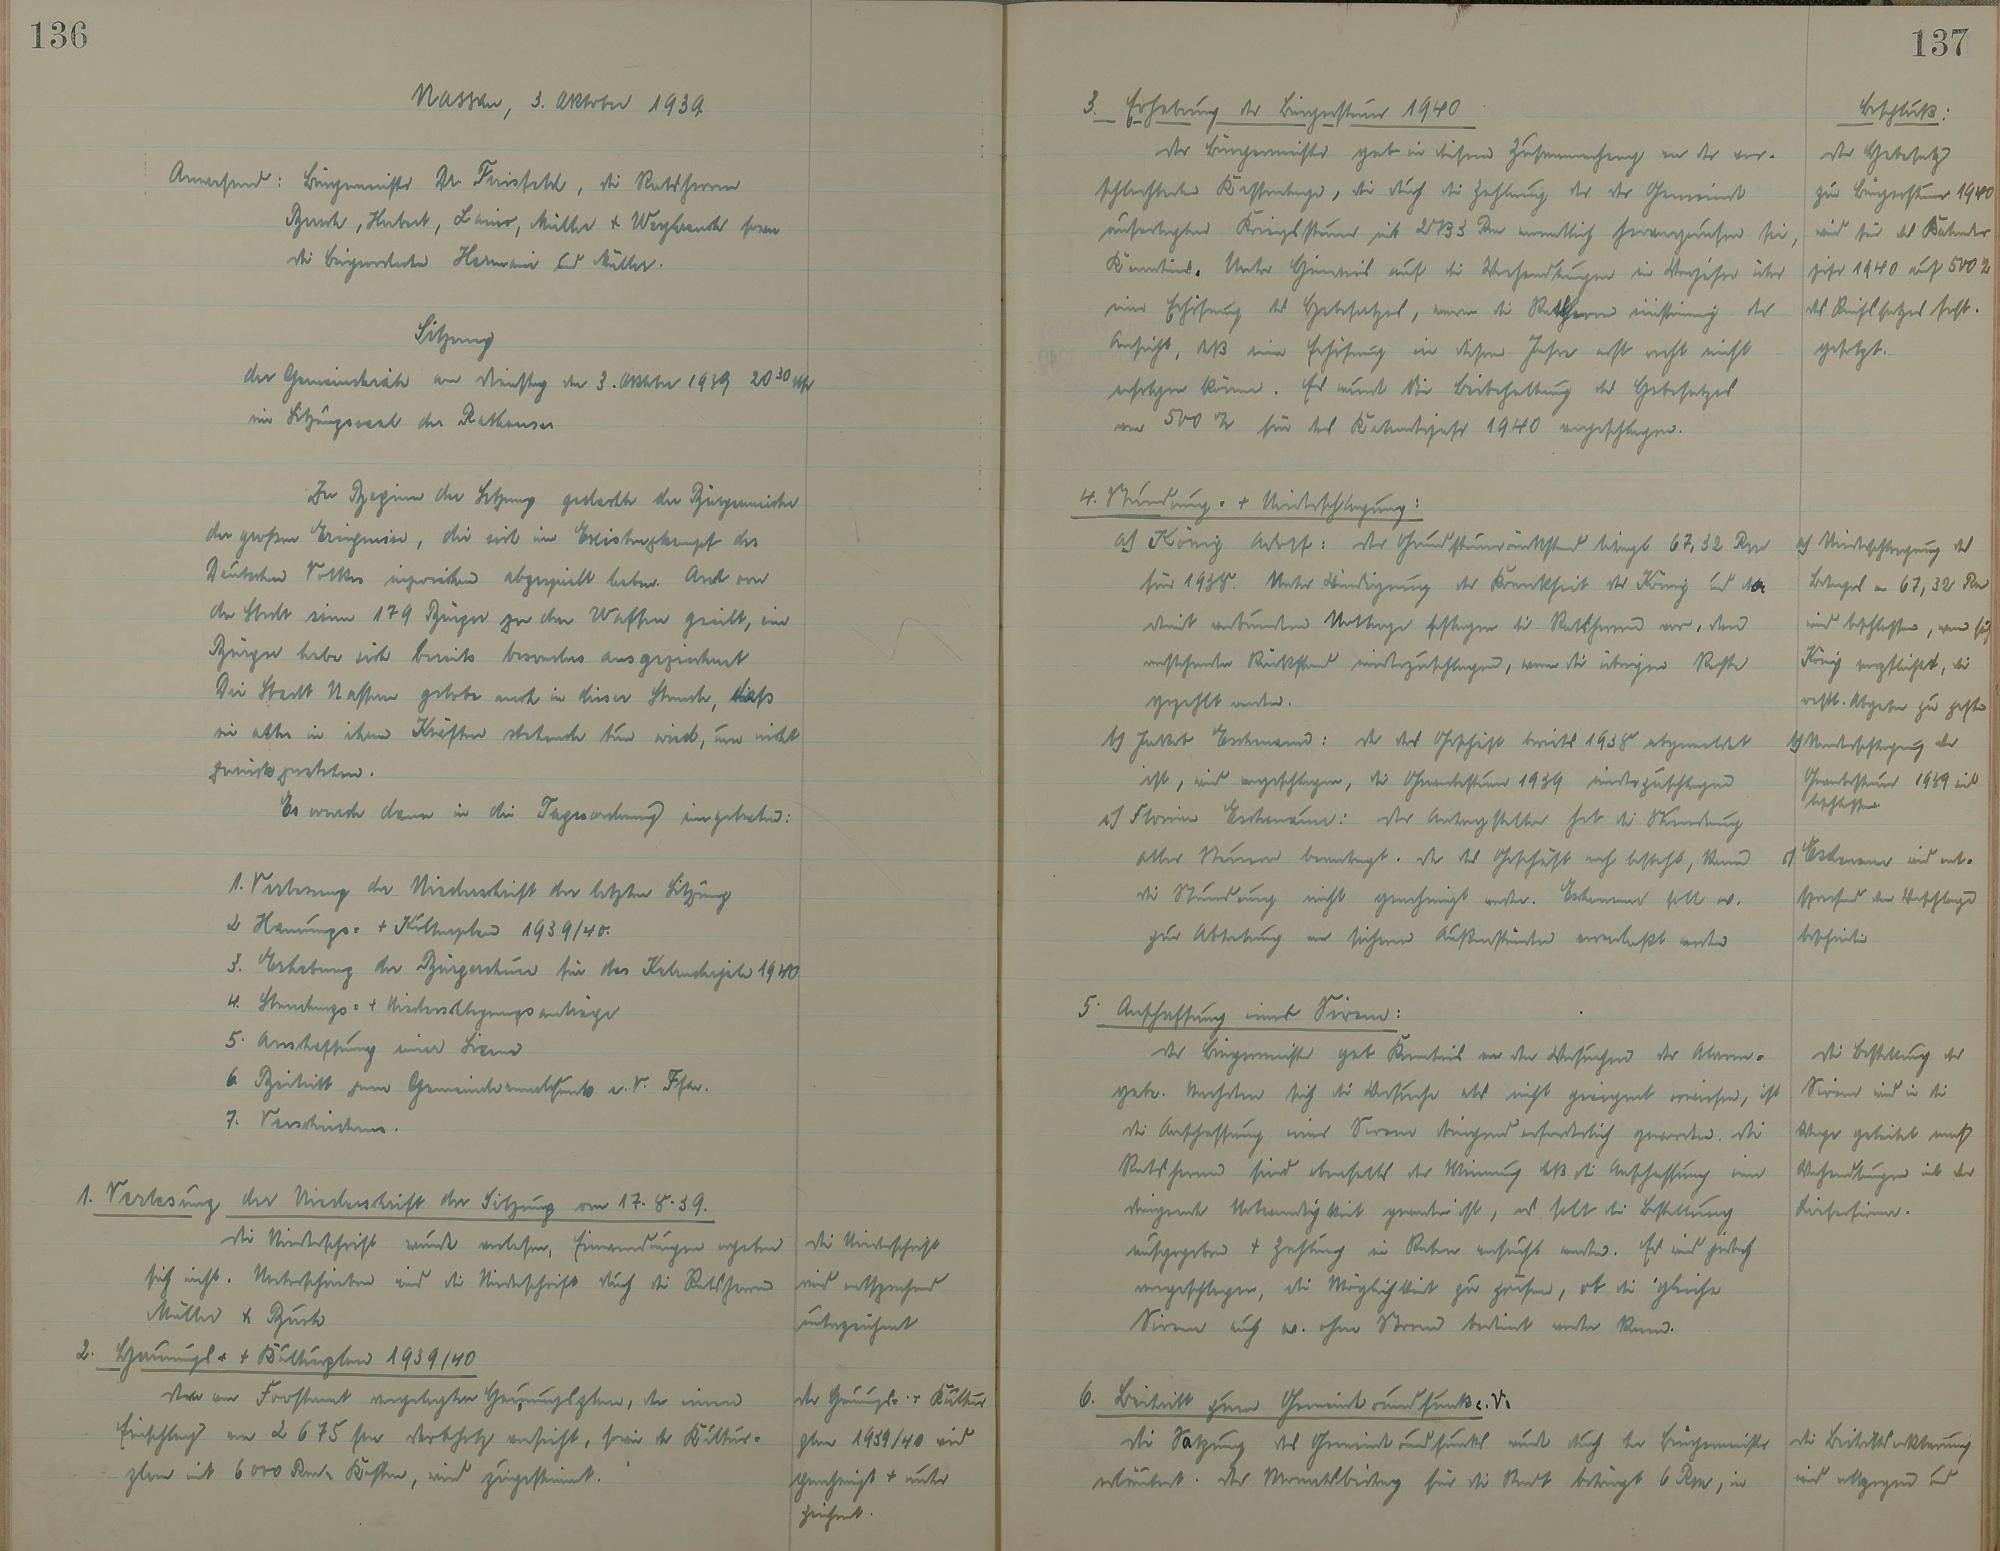 136
Nassau, 3. Oktober 1939
Anwesend: Bürgermeister Dr. , die Ratsherren
Busch, Hubert, Lanio, Müller + Weyhrauch sowie
die Beigeordneten Hermani und Müller.
Sitzung
der Gemeinderäte am Dienstag den 3. Oktober 1939 20 30 Uhr
im Sitzungssaal des Rathauses
Zu Beginn der Sitzung gedachte der Bürgermeister
der großen Ereignisse, die sich im Existenzkampf des
Deutschen Volkes inzwischen abgespielt haben. Auch von
der Stadt seien 179 Bürger zu den Waffen geeilt, ein
Bürger habe sich bereits besonders ausgezeichnet
Die Stadt Nassau gelobe auch in dieser Stunde, dass
sie alles in ihren Kräften stehende tun wird, um nicht
zurückzustehen.
Es wurde dann in die Tagesordnung eingetreten:
1. Verlesung der Niederschrift der letzten Sitzung
2 Hauungs= + Kulturplan 1939/40.
3. Erhebung der Bürgersteuer für das Kalenderjahr 1940
4. Stundungs= + Niederschlagungsanträge
5. Anschaffung einer Sirene
6 Beitritt zum Gemeinderundfunk e. V. Ffm.
7. Verschiedenes.
1. Verlesung der Niederschrift der Sitzung vom 17.8.39.
Die Niederschrift wurde verlesen, Einwendungen ergeben
sich nicht. Unterschrieben wird die Niederschrift durch die Ratsherren
Müller & Busch
Die Niederschrift
wird entsprechend
unterzeichnet
2. Hauungs= + Kulturplan 1939/40
Dem vom Forstamt vorgelegten Hauungsplan, der einen
Einschlag von 2675 fm Derbholz vorsieht, sowie der Kultur=
plan mit 6000 Rm. Kosten, wird zugestimmt.
Der Hauungs= + Kultur
plan 1939/40 wird
genehmigt + unter
zeichnet.
137
3. Erhebung der Bürgersteuer 1940
Der Bürgermeister gab in diesem Zusammenhang von der ver=
schlechterten Kassenlage, die durch die Zahlung der der Gemeinde
auferlegten Kriegssteuer mit 2833 Rm monatlich hervorgerufen sei,
Kenntnis. Unter Hinweis auf die Verhandlungen im Vorjahre über
eine Erhöhung des Hebesatzes, waren die Ratsherren einstimmig der
Ansicht, daß eine Erhöhung in diesem Jahre erst recht nicht
erfolgen könne. Es wurde die Beibehaltung des Hebesatzes
von 500 % für das Kalenderjahr 1940 vorgeschlagen.
Beschluß:
Der Hebesatz
zur Bürgersteuer 1940
wird für das Kalender
jahr 1940 auf 500 %
des Reichssatzes fest=
gesetzt.
4. Stundung= + Niederschlagung:
a) König Adolf: Der Grundsteuerrückstand beträgt 67,32 Rm
für 1938. Unter Würdigung der Krankheit des König und der
damit verbundenen Notlage schlagen die Ratsherren vor, den
entstehenden Rückstand niederzuschlagen, wenn die übrigen Reste
gezahlt werden.
a) Niederschlagung des
Betrages von 67,32 Rm
wird beschlossen, wenn sich
König verpflichtet, die
restl. Abgaben zu zahlen
b) Jakob : da das Geschäft bereits 1938 abgemeldet
ist, wird vorgeschlagen, die Gewerbesteuer 1939 niederzuschlagen
b) Niederschlagung der
Gewerbesteuer 1939 wird
beschlossen
c) : Der Antragsteller hat die Stundung
aller Steuern beantragt. Da das Geschäft noch besteht, kann
die Stundung nicht genehmigt werden. soll ev.
zur Abtretung von sicheren Außenständen veranlaßt werden
c) wird ent=
sprechend dem Vorschlage
beschieden
5. Anschaffung einer Sirene:
Der Bürgermeister gab Kenntnis von den Versuchen der Alarm=
gabe. Nachdem sich die Versuche als nicht geeignet erwiesen, ist
die Anschaffung einer Sirene dringend erforderlich geworden. Die
Ratsherren sind ebenfalls der Meinung daß die Anschaffung eine
dringende Notwendigkeit geworden ist, es soll die Bestellung
aufgegeben + Zahlung in Raten versucht werden. Es wird jedoch
vorgeschlagen, die Möglichkeit zu prüfen, ob die gleiche
Sirene auch ev. ohne Strom bedient werden kann.
Die Bestellung der
Sirene wird in die
Wege geleitet nach
Verhandlungen mit der
Lieferfirma.
6. Beitritt zum Gemeinderundfunk e.V.
Die Satzung des Gemeinderundfunks wurde durch den Bürgermeister
erläutert. Der Monatsbeitrag für die Stadt beträgt 6 Rm, in
Die Beitrittserklärung
wird vollzogen und